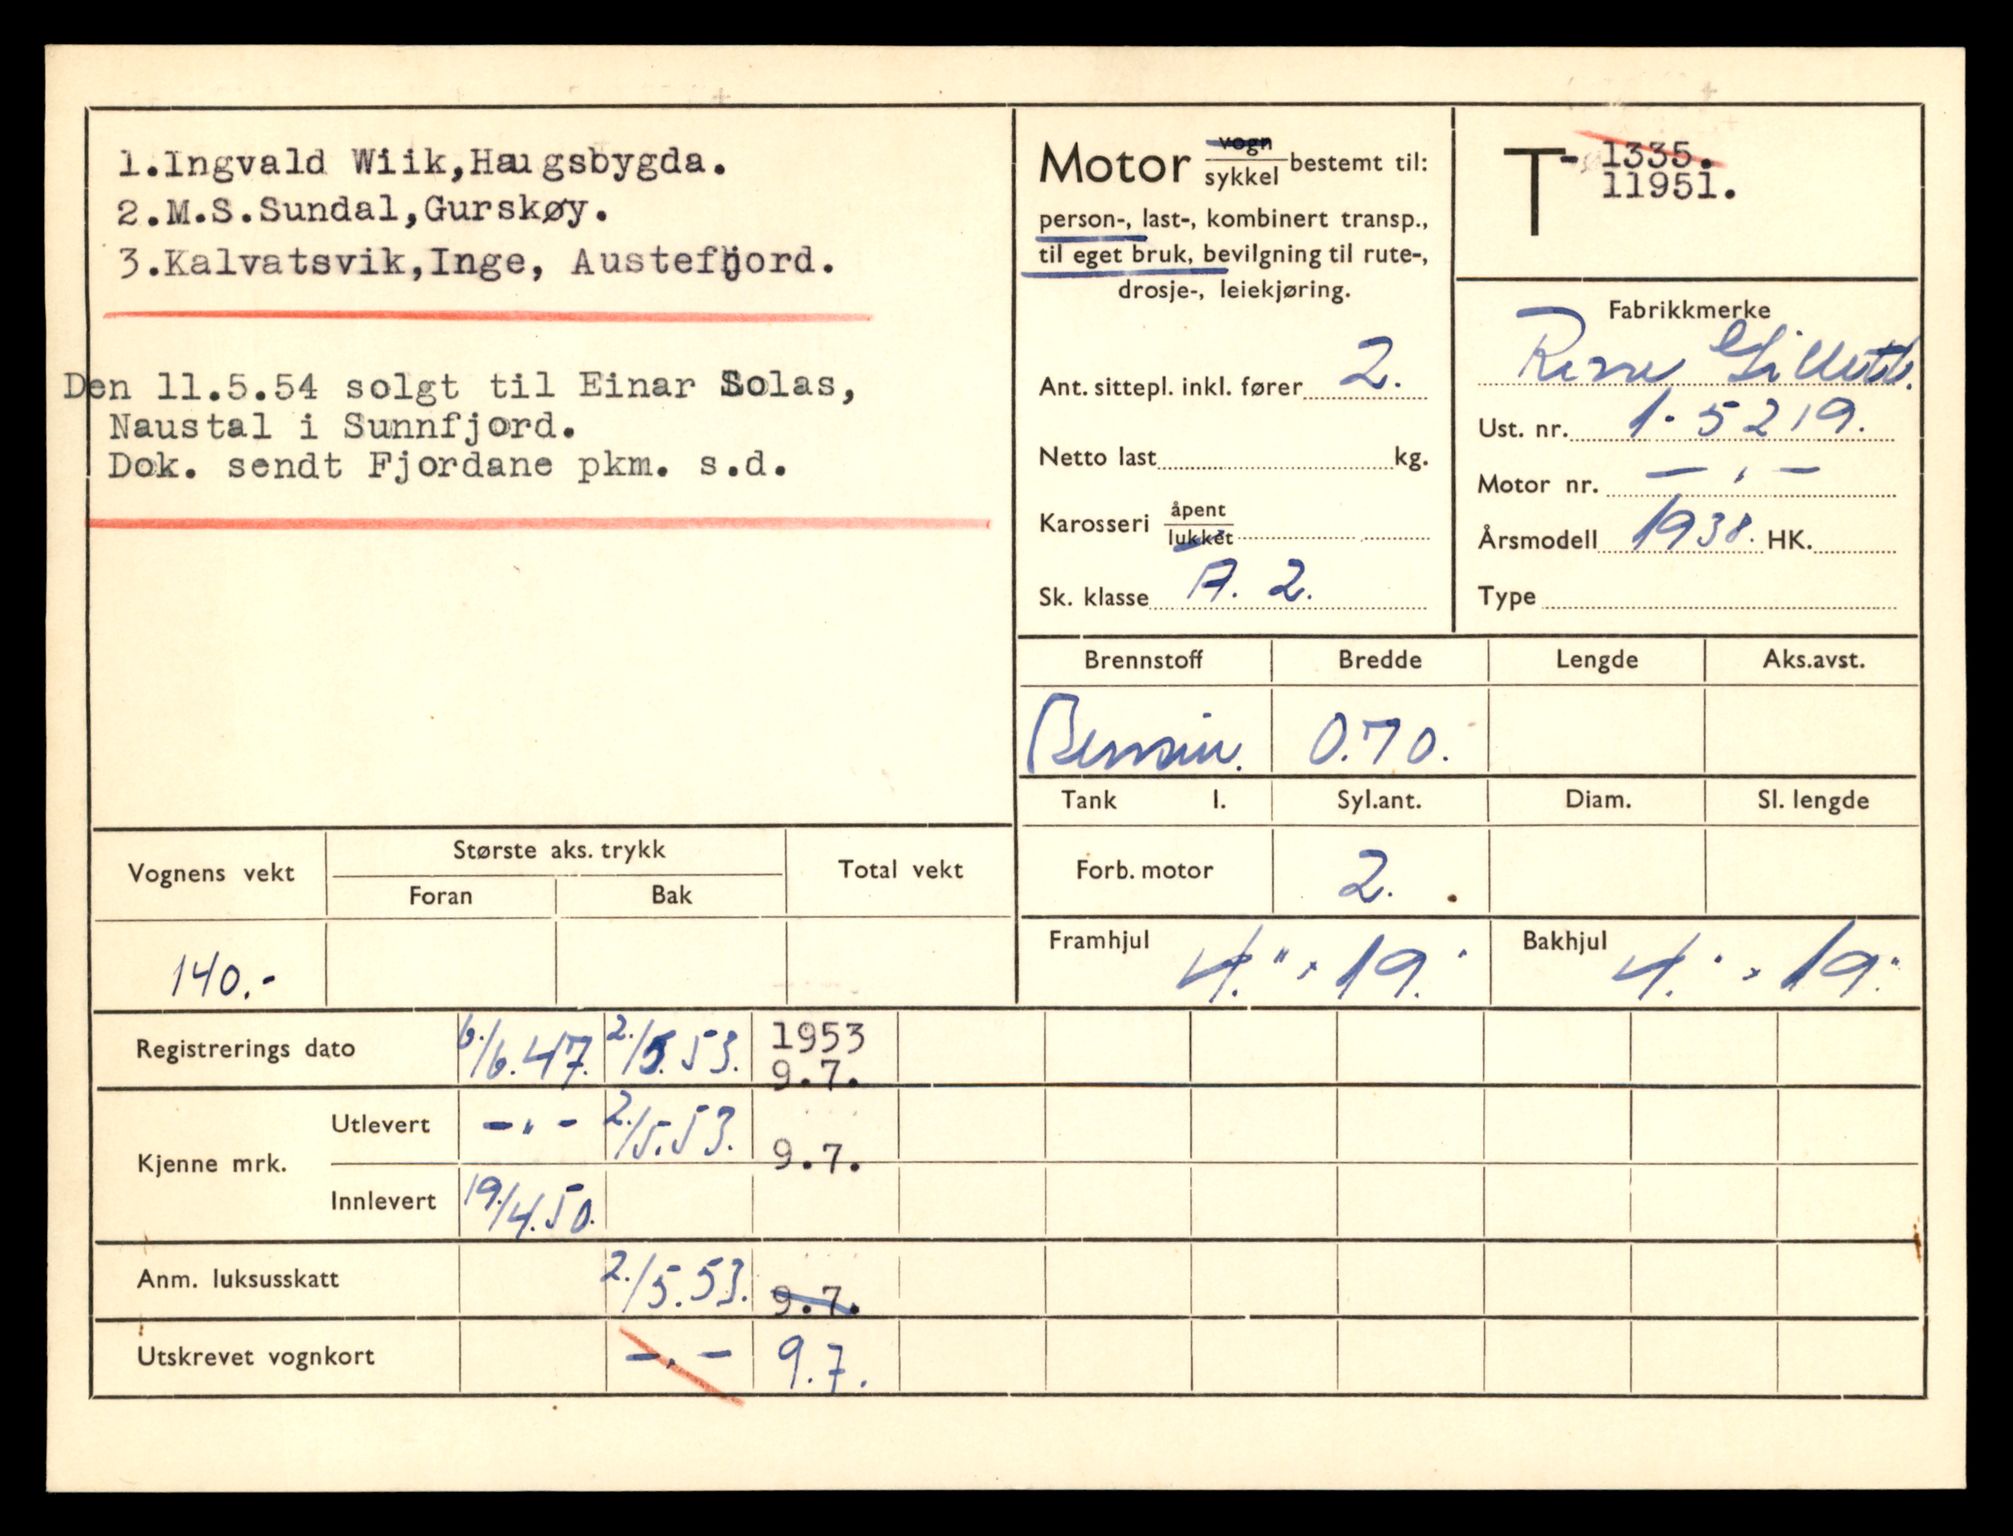 1.Ingvald Wiik,Haugsbygda.
2.M.S.Sundal,Gurskøy.
3.Kalvatsvik,Inge, Austefjord.
Den 11.5.54 solgt til Einar Solas,
Naustal i Sunnfjord.
Dok. sendt Fjordane pkm. s.d.
Motor vogn/sykkel bestemt til:
person-, last-, kombinert transp.,
til eget bruk, bevilgning til rute-,
drosje-, leiekjøring.
Ant. sittepl. inkl. fører 2.
Netto last kg.
Karosseri åpent/lukket
Sk. klasse A. 2.
T- 1335.
11951.
Fabrikkmerke
Ust. nr. 1-5219.
Motor nr. — " —
Årsmodell 1938. HK.
Type
Brennstoff Bredde Lengde Aks.avst.
Bensin. 0.70.
Tank l. Syl.ant. Diam. Sl. lengde
Forb. motor 2.
Framhjul 4." × 19." Bakhjul 4." × 19."
Vognens vekt Største aks. trykk Total vekt
Foran Bak
140.-
Registrerings dato 6./6.47. 2./5.53. 1953
9.7.
Kjenne mrk. Utlevert -"- 2/5.53. 9.7.
Innlevert 19./4.50.
Anm. luksusskatt 2./5.53. 9.7.
Utskrevet vognkort -"- 9.7.